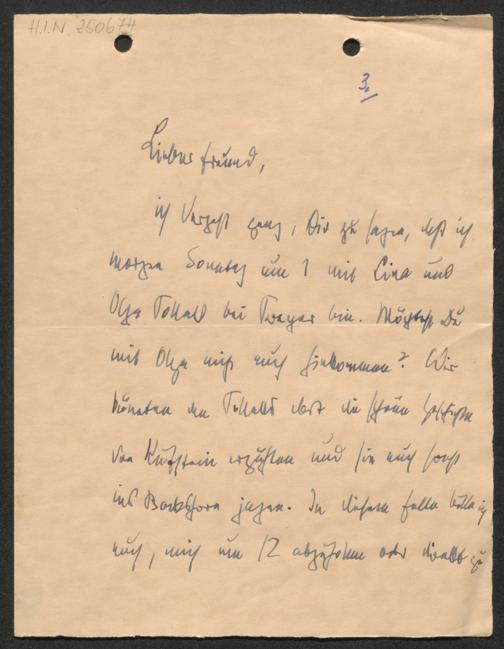 H.I.N. 250674
3.
Lieber Freund,
ich vergaß ganz, Dir zu sagen, daß ich
morgen Sonntag um 1 mit Lina und
Olga bei bin. Möchtest Du
mit Olga nicht auch hinkommen? Wir
könnten den dort die schöne Geschichte
von Kufstein erzählen und sie auch sonst
ins Bockshorn jagen. In diesem Falle bitte ich
euch, mich um 12 abzuholen oder direkt zu